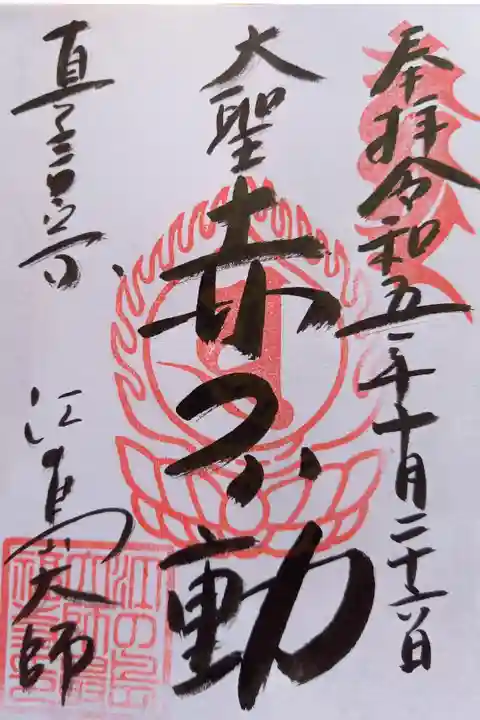 奉拝令和五年十月二十六日
大聖
赤不動
真言宗
江島大師
江の島